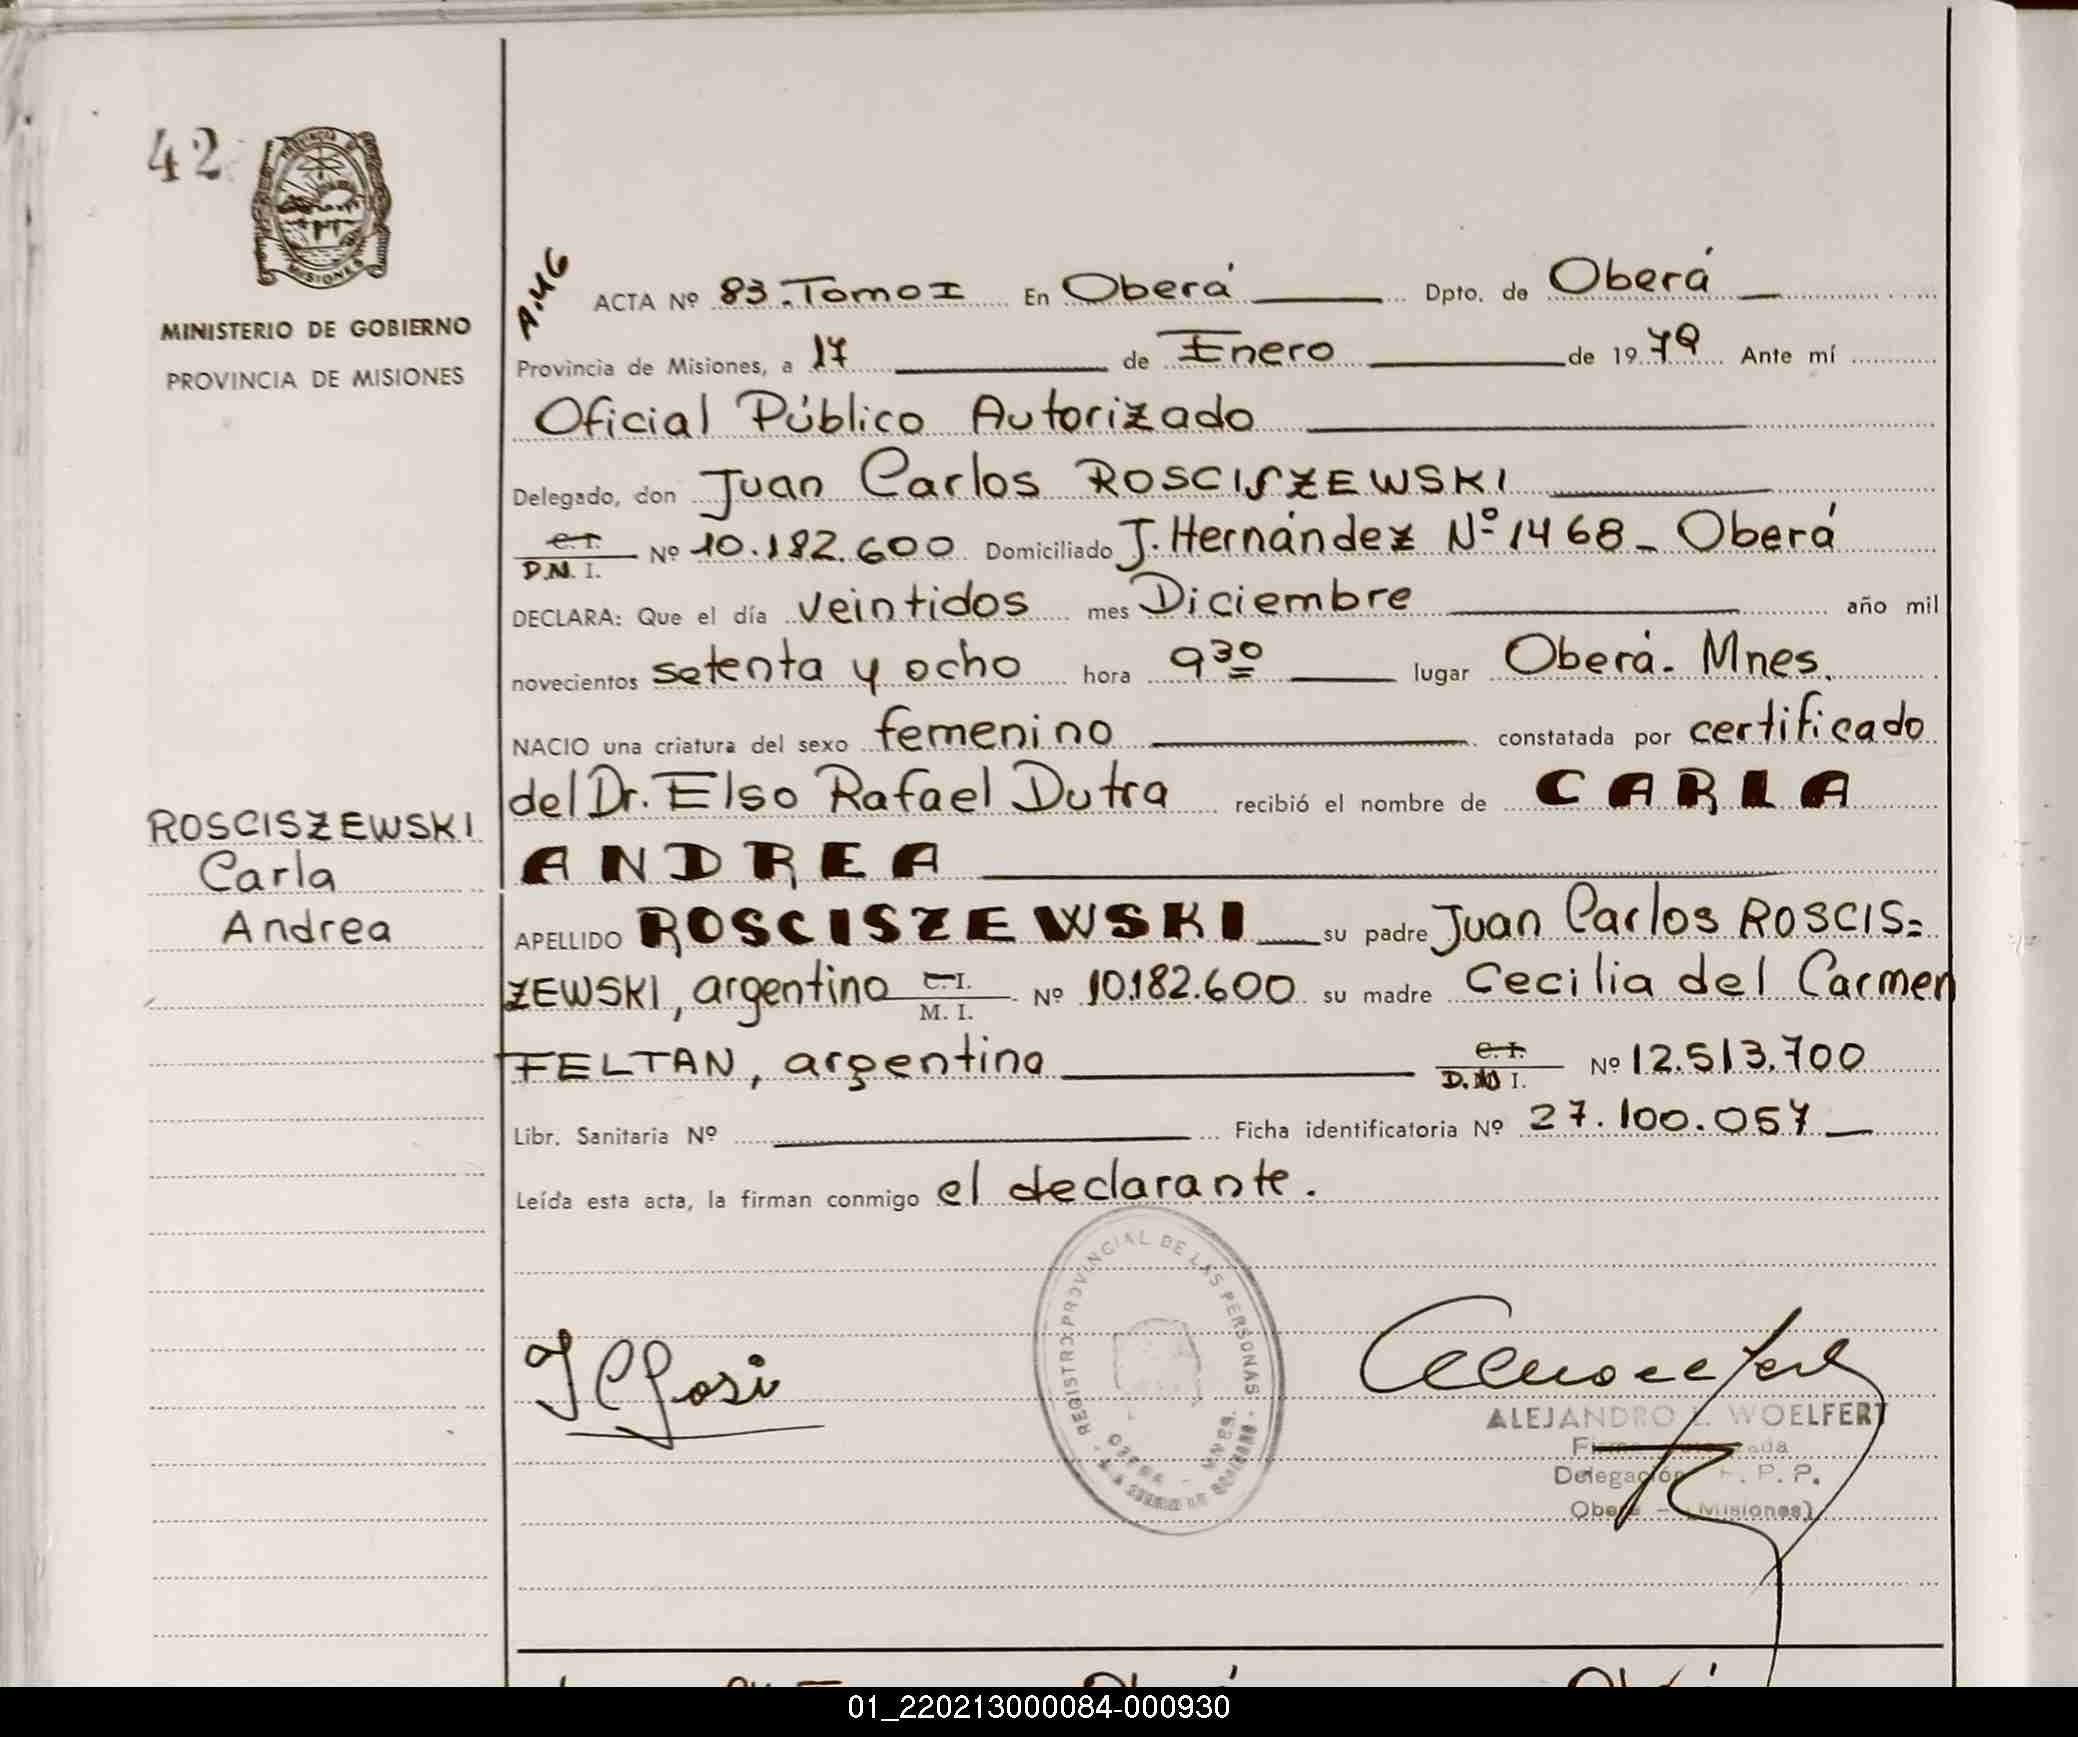 42
PROVINCIA DE
MISIONES
MINISTERIO DE GOBIERNO
PROVINCIA DE MISIONES
ROSCISZEWSKI
Carla
Andrea
A.46
ACTA Nº 83.Tomo I En Oberá Dpto. de Oberá
Provincia de Misiones, a 17 de Enero de 1979 Ante mí
Oficial Público Autorizado
Delegado, don Juan Carlos ROSCISZEWSKI
C.I. D.N.I. Nº 10.182.600 Domiciliado J. Hernández Nº 1468 - Oberá
DECLARA: Que el día veintidos mes Diciembre año mil
novecientos setenta y ocho hora 9 30 lugar Oberá. Mnes.
NACIO una criatura del sexo femenino constatada por certificado
del Dr. Elso Rafael Dutra recibió el nombre de CARLA
ANDREA
APELLIDO ROSCISZEWSKI su padre Juan Carlos ROSCIS=
ZEWSKI, argentino C.I. M. I. Nº 10.182.600 su madre Cecilia del Carmen
FELTAN, argentina C.I. D.N.I. Nº 12.513.700
Libr. Sanitaria Nº Ficha identificatoria Nº 27.100.057
Leída esta acta, la firman conmigo el declarante.
REGISTRO PROVINCIAL DE LAS PERSONAS
OBERA - MNES.
ALEJANDRO L. WOELFERT
Delegación R. P. P.
Oberá - (Misiones)
01_220213000084-000930